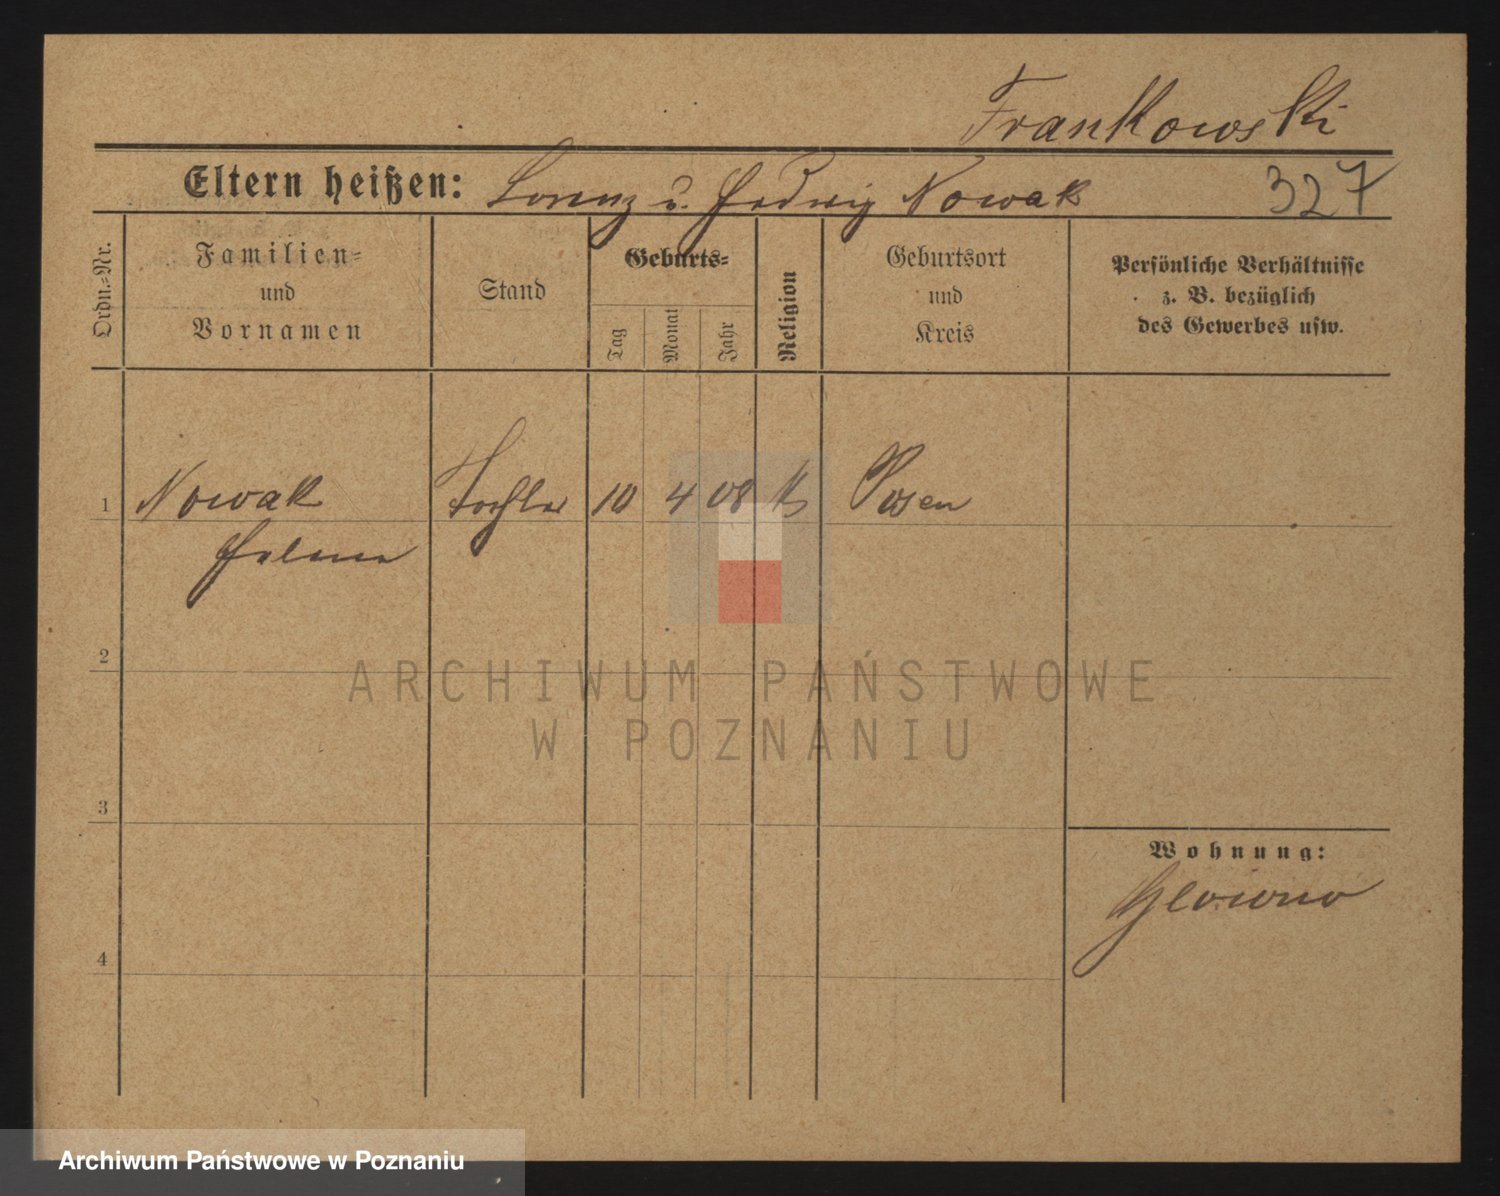 Frankowski
Eltern heißen: Lorenz u. Hedwig Nowak 327
Ordn.-Nr.
Familien-
und
Vornamen
Stand
Geburts-
Tag
Monat
Jahr
Religion
Geburtsort
und
Kreis
Persönliche Verhältnisse
z. B. bezüglich
des Gewerbes usw.
1 Nowak Tochter 10 4 08 k Posen
2
3
4
Wohnung:
Glowno
ARCHIWUM PAŃSTWOWE
W POZNANIU
Archiwum Państwowe w Poznaniu